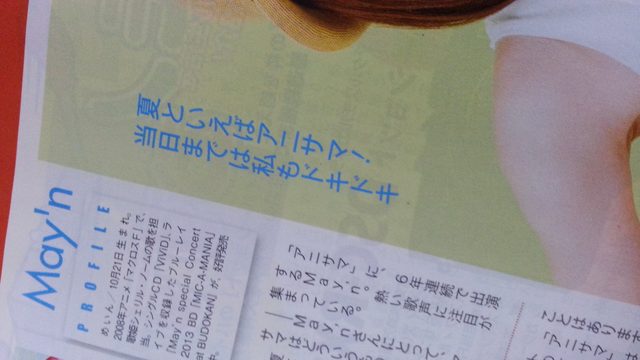 夏といえばアニサマ！
当日までは私もドキドキ
May'n
PROFILE
めいん／10月21日生まれ。
2008年アニメ『マクロスF』で、
歌姫シェリル・ノームの歌を担
当。シングルCD『ViViD』、ラ
イブを収録したブルーレイ
『May'n Special Concert
2013 BD「MIC-A-MANIA」
at BUDOKAN』が、好評発売
中。
『アニサマ』に、6年連続で出演
するMay'n。熱い歌声に注目が
集まっている。
──May'nさんにとって、
サマはどういう
ことはありま
『アニサマ